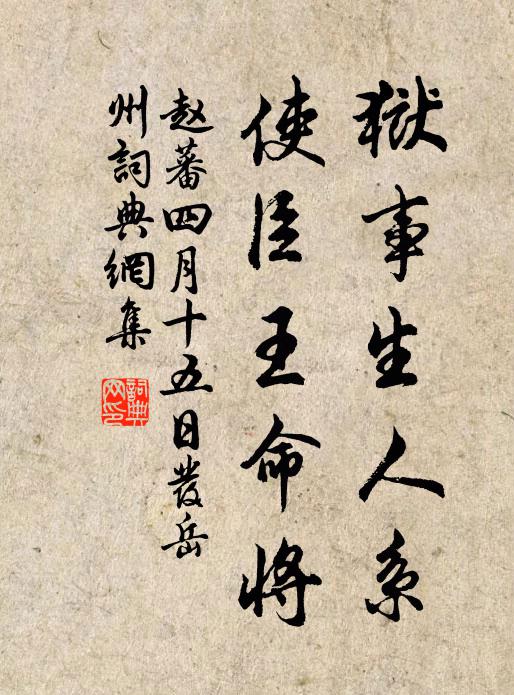 獄事生人系
使臣王命將
赵蕃四月十五日發岳
州詞典網集
詞典
网印